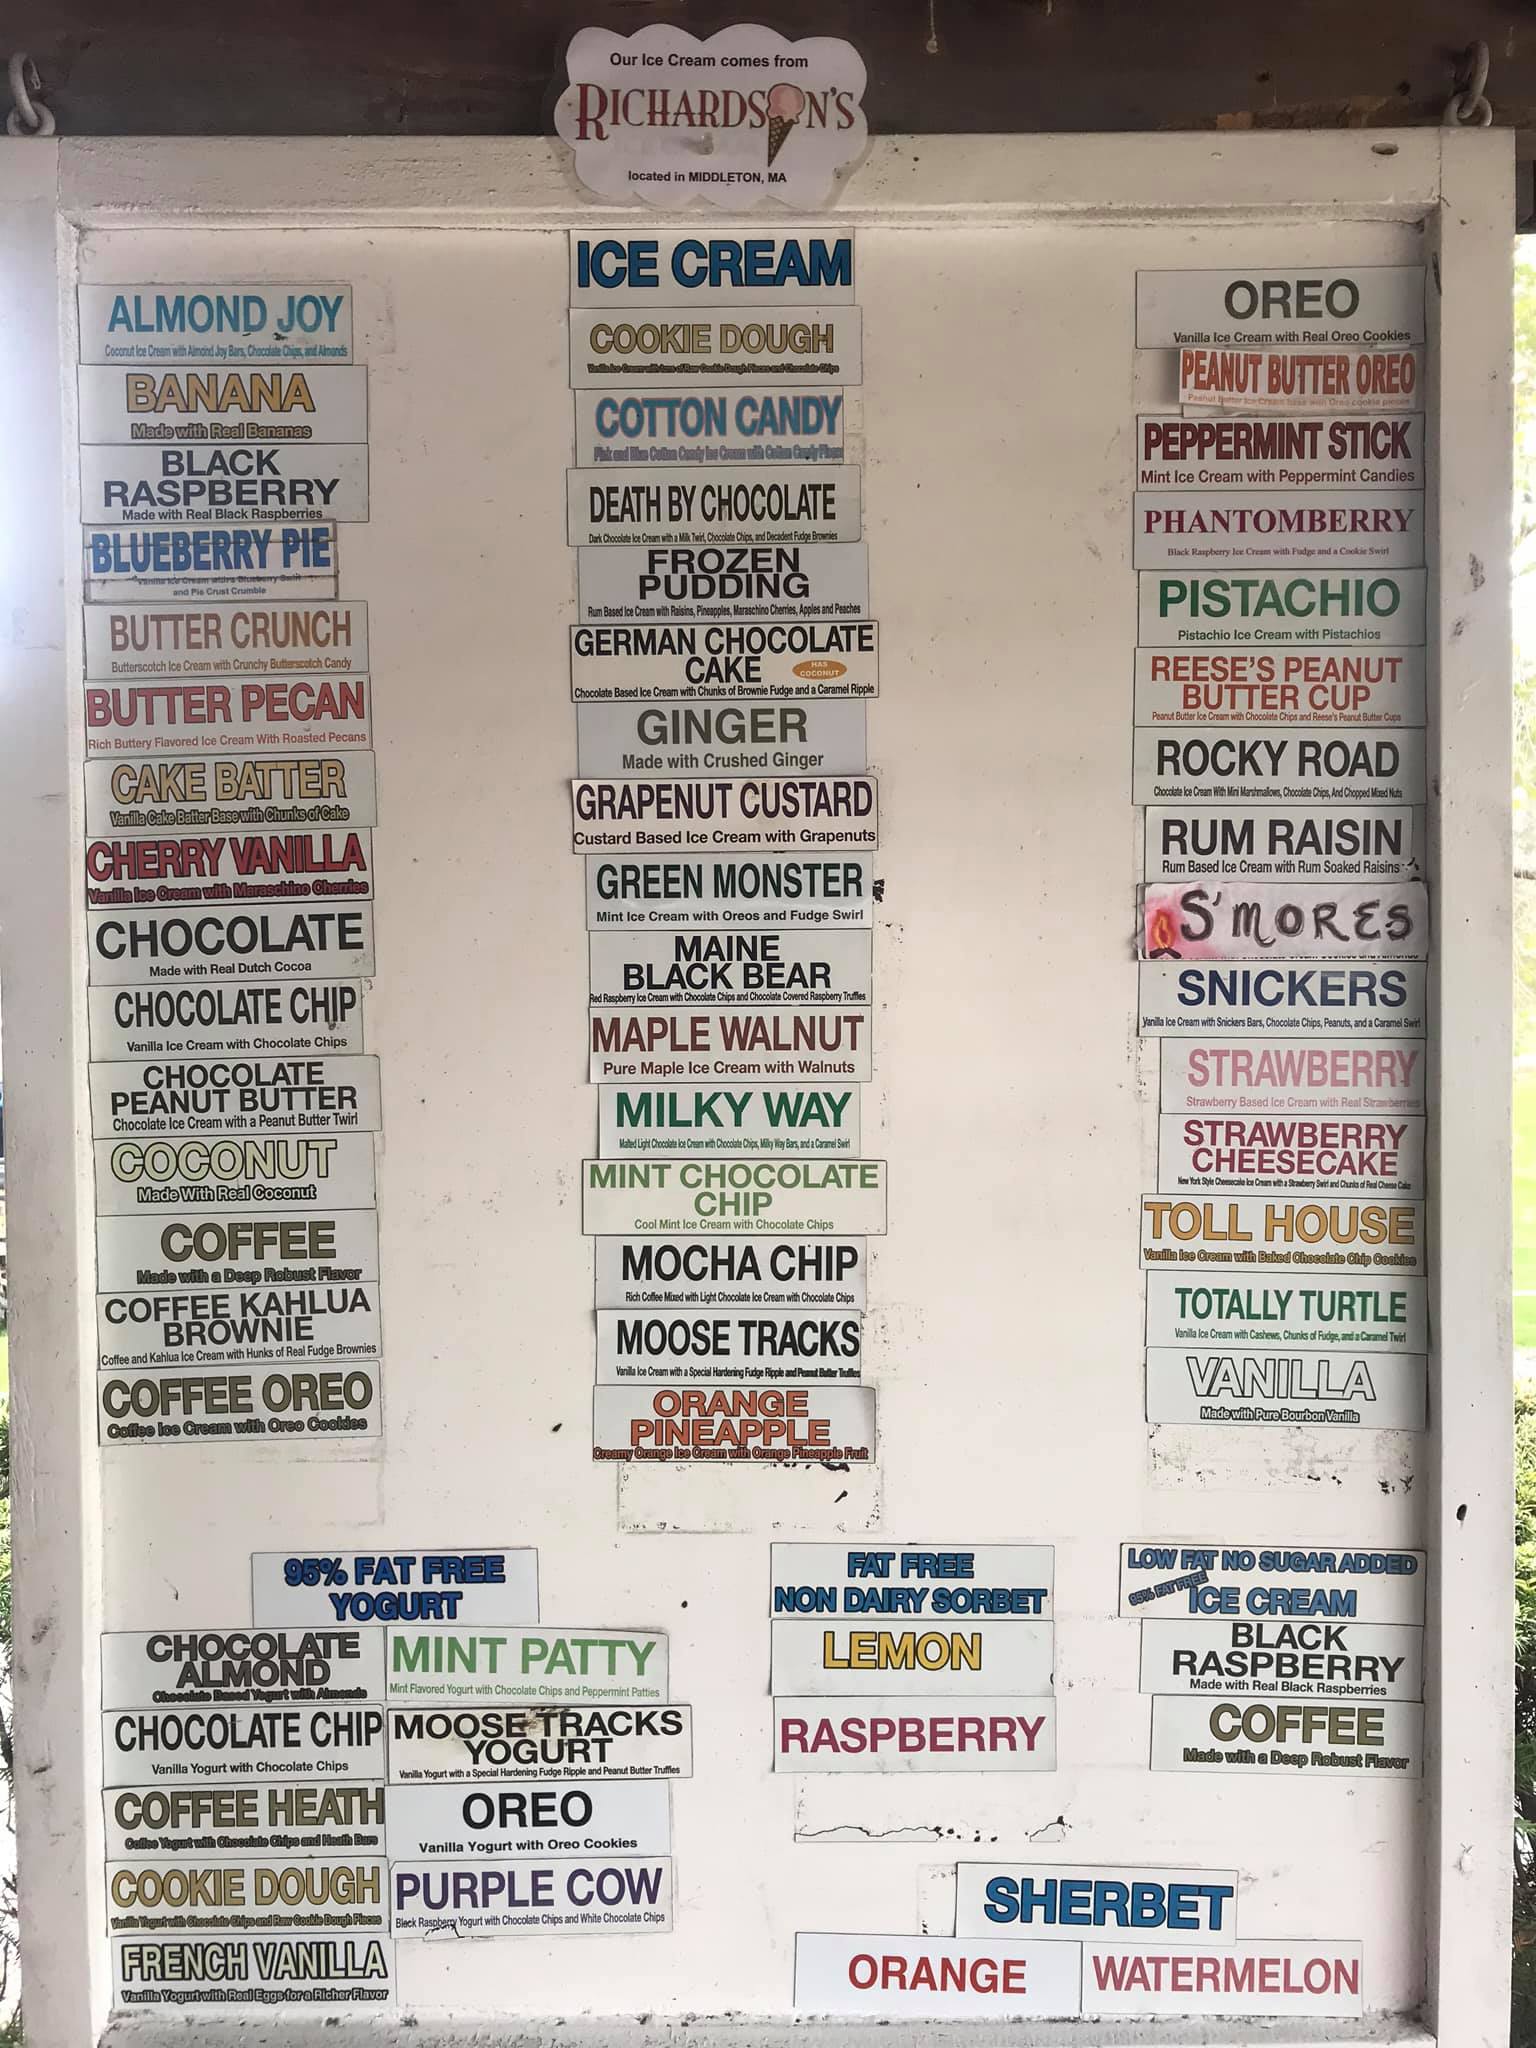 Our Ice Cream comes from
RICHARDSON'S
located in MIDDLETON, MA
ICE CREAM
ALMOND JOY
Coconut Ice Cream with Almond Joy Bars, Chocolate Chips, and Almonds
BANANA
Made with Real Bananas
BLACK
RASPBERRY
Made with Real Black Raspberries
BLUEBERRY PIE
Vanilla Ice Cream with a Blueberry Swirl
and Pie Crust Crumble
BUTTER CRUNCH
Butterscotch Ice Cream with Crunchy Butterscotch Candy
BUTTER PECAN
Rich Buttery Flavored Ice Cream With Roasted Pecans
CAKE BATTER
Vanilla Cake Batter Base with Chunks of Cake
CHERRY VANILLA
Vanilla Ice Cream with Maraschino Cherries
CHOCOLATE
Made with Real Dutch Cocoa
CHOCOLATE CHIP
Vanilla Ice Cream with Chocolate Chips
CHOCOLATE
PEANUT BUTTER
Chocolate Ice Cream with a Peanut Butter Twirl
COCONUT
Made With Real Coconut
COFFEE
Made with a Deep Robust Flavor
COFFEE KAHLUA
BROWNIE
Coffee and Kahlua Ice Cream with Hunks of Real Fudge Brownies
COFFEE OREO
Coffee Ice Cream with Oreo Cookies
COOKIE DOUGH
Vanilla Ice Cream with tons of Raw Cookie Dough Pieces and Chocolate Chips
COTTON CANDY
Pink and Blue Cotton Candy Ice Cream with Cotton Candy
DEATH BY CHOCOLATE
Dark Chocolate Ice Cream with a Milk Twirl, Chocolate Chips, and Decadent Fudge Brownies
FROZEN
PUDDING
Rum Based Ice Cream with Raisins, Pineapples, Maraschino Cherries, Apples and Peaches
GERMAN CHOCOLATE
CAKE HAS COCONUT
Chocolate Based Ice Cream with Chunks of Brownie Fudge and a Caramel Ripple
GINGER
Made with Crushed Ginger
GRAPENUT CUSTARD
Custard Based Ice Cream with Grapenuts
GREEN MONSTER
Mint Ice Cream with Oreos and Fudge Swirl
MAINE
BLACK BEAR
Red Raspberry Ice Cream with Chocolate Chips and Chocolate Covered Raspberry Truffles
MAPLE WALNUT
Pure Maple Ice Cream with Walnuts
MILKY WAY
Malted Light Chocolate Ice Cream with Chocolate Chips, Milky Way Bars, and a Caramel Swirl
MINT CHOCOLATE
CHIP
Cool Mint Ice Cream with Chocolate Chips
MOCHA CHIP
Rich Coffee Mixed with Light Chocolate Ice Cream with Chocolate Chips
MOOSE TRACKS
Vanilla Ice Cream with a Special Hardening Fudge Ripple and Peanut Butter Truffles
ORANGE
PINEAPPLE
Creamy Orange Ice Cream with Orange Pineapple Fruit
OREO
Vanilla Ice Cream with Real Oreo Cookies
PEANUT BUTTER OREO
Peanut Butter Ice Cream base with Oreo cookie pieces
PEPPERMINT STICK
Mint Ice Cream with Peppermint Candies
PHANTOMBERRY
Black Raspberry Ice Cream with Fudge and a Cookie Swirl
PISTACHIO
Pistachio Ice Cream with Pistachios
REESE'S PEANUT
BUTTER CUP
Peanut Butter Ice Cream with Chocolate Chips and Reese's Peanut Butter Cups
ROCKY ROAD
Chocolate Ice Cream With Mini Marshmallows, Chocolate Chips, And Chopped Mixed Nuts
RUM RAISIN
Rum Based Ice Cream with Rum Soaked Raisins
S'MORES
SNICKERS
Vanilla Ice Cream with Snickers Bars, Chocolate Chips, Peanuts, and a Caramel Swirl
STRAWBERRY
Strawberry Based Ice Cream with Real Strawberries
STRAWBERRY
CHEESECAKE
New York Style Cheesecake Ice Cream with a Strawberry Swirl and Chunks of Real Cheese Cake
TOLL HOUSE
Vanilla Ice Cream with Baked Chocolate Chip Cookies
TOTALLY TURTLE
Vanilla Ice Cream with Cashews, Chunks of Fudge, and a Caramel Twirl
VANILLA
Made with Pure Bourbon Vanilla
95% FAT FREE
YOGURT
CHOCOLATE
ALMOND
Chocolate Based Yogurt with Almonds
CHOCOLATE CHIP
Vanilla Yogurt with Chocolate Chips
COFFEE HEATH
Coffee Yogurt with Chocolate Chips and Heath Bars
COOKIE DOUGH
Vanilla Yogurt with Chocolate Chips and Raw Cookie Dough Pieces
FRENCH VANILLA
Vanilla Yogurt with Real Eggs for a Richer Flavor
MINT PATTY
Mint Flavored Yogurt with Chocolate Chips and Peppermint Patties
MOOSE TRACKS
YOGURT
Vanilla Yogurt with a Special Hardening Fudge Ripple and Peanut Butter Truffles
OREO
Vanilla Yogurt with Oreo Cookies
PURPLE COW
Black Raspberry Yogurt with Chocolate Chips and White Chocolate Chips
FAT FREE
NON DAIRY SORBET
LEMON
RASPBERRY
LOW FAT NO SUGAR ADDED
95% FAT FREE
ICE CREAM
BLACK
RASPBERRY
Made with Real Black Raspberries
COFFEE
Made with a Deep Robust Flavor
SHERBET
ORANGE
WATERMELON